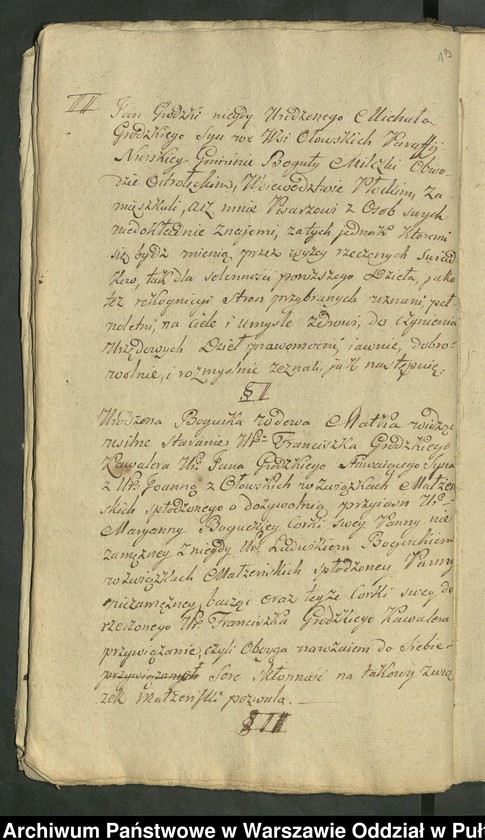 13
III
Jan Grodzki niegdy Urodzonego Michała
Grodzkiego Syn we Wsi Ołowskich Paraffij
Nurskiey Gminnie Boguty Milczki Obwo-
dzie Ostrołęckim, Wojewodztwie Płockim, Za-
mieszkali, acz mnie Pisarzowi z Osob swych
niedokładnie znajomi, zatych jednakż ktoremi
się bydź mienią, przez wyżey rzeczonych Swiad
kow, tak dla solennosci poniższego Dzieła, jako
też rekognicyi Stron przybranych uznani, peł
noletni, na ciele i umyśle zdrowi, do czynienia
Urzędowych Dzieł prawomocni, iawnie, dobro-
wolnie, i rozmyslnie zeznali, jak następuię.
§ I
Urodzona Bogucka wdowa Matka widząc
usilne Staranie Ur. Franciszka Grodzkiego
Kawalera Ur. Jana Grodzkiego Stawaiącego Syna
z Ur. Joanną z Ołowskich w związkach Małżeń
skich spłodzonego o dożywotnią przyiaźń Ur.
Maryanny Boguckiey Corki swey Panny nie
zamężney z niegdy Ur. Ludwikiem Boguckiem
w związkach Małżeńskich spłodzoney Panny
niezamężney, bacząc oraz teyże Corki swey do
rzeczonego Ur. Franciszka Grodzkiego Kawalera
przywiązanie, czyli Oboyga nawzaiem do Siebie
przywiązanych Serc Skłonność na takowy Zwią
zek Małżeński pozwala. —
§ II
Archiwum Państwowe w Warszawie Oddział w Puł